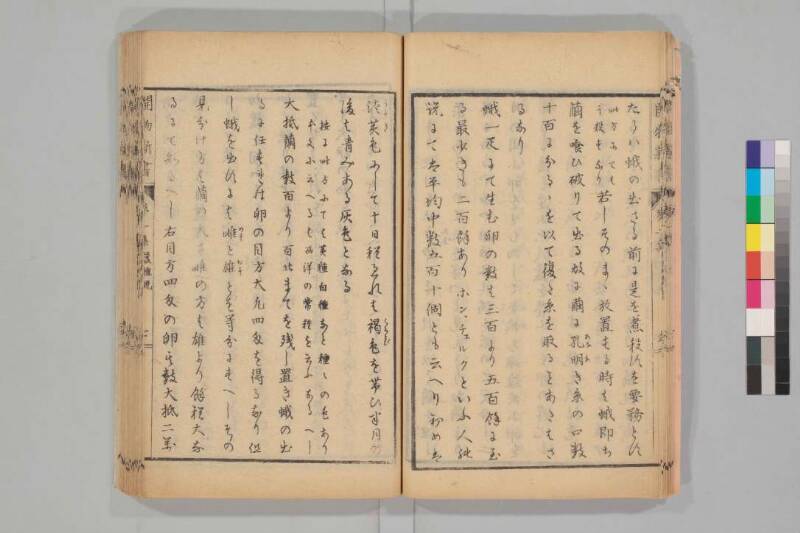 たるい蛾の出さる前に是を煮殺すを要務とす
此方にても
若しそのまゝ放置する時も蛾即ち
繭を喰ひ破りて出る故に繭に孔明き糸の口数
十百にわかるゝを以て復た糸を取ることあたはさ
るなり
蛾一疋にて生む卵の数も三百より五百餘に至
る最少きも二百餘あり ホン、チェルクといふ人の
説にては平均中数五百十個とも云へり初めは
淡黄色にして十日程たれは褐色を帯ひ半月の
後は青みある灰色となる
按に此方にても黄種白種なと種々の色あり
本文に云へるは西洋の常種を云ふなるへし
大抵繭の数百より百廿まてを残し置き蛾の出
るに任すれは卵の目方大凡四匁を得るなり但
し蛾を出すには雌と雄とを等分にすへしその
見分け方は繭の大さ雌の方は雄より餘程大な
るにて知るへし右目方四匁の卵は数大抵二万
開物新書